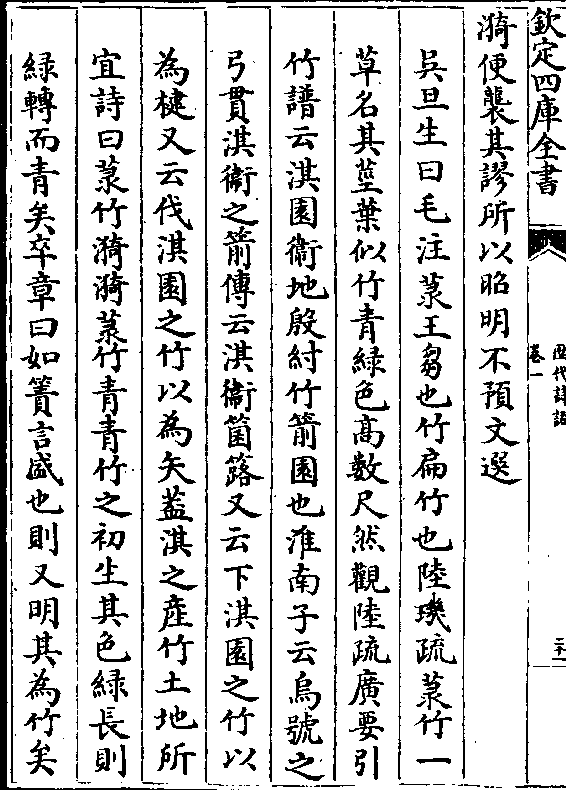 欽定四庫全書
歷代詩話
卷一
漪便襲其謬所以昭明不預文選
吳旦生曰毛注菉王芻也竹扁竹也陸璣疏菉竹一
草名其莖葉似竹青綠色高數尺然觀陸疏廣要引
竹譜云淇園衞地殷紂竹箭園也淮南子云烏號之
弓貫淇衞之箭傳云淇衞箘簬又云下淇園之竹以
為楗又云伐淇園之竹以為矢蓋淇之產竹土地所
宜詩曰菉竹漪漪菉竹青青竹之初生其色綠長則
綠轉而青矣卒章曰如簀言盛也則又明其為竹矣